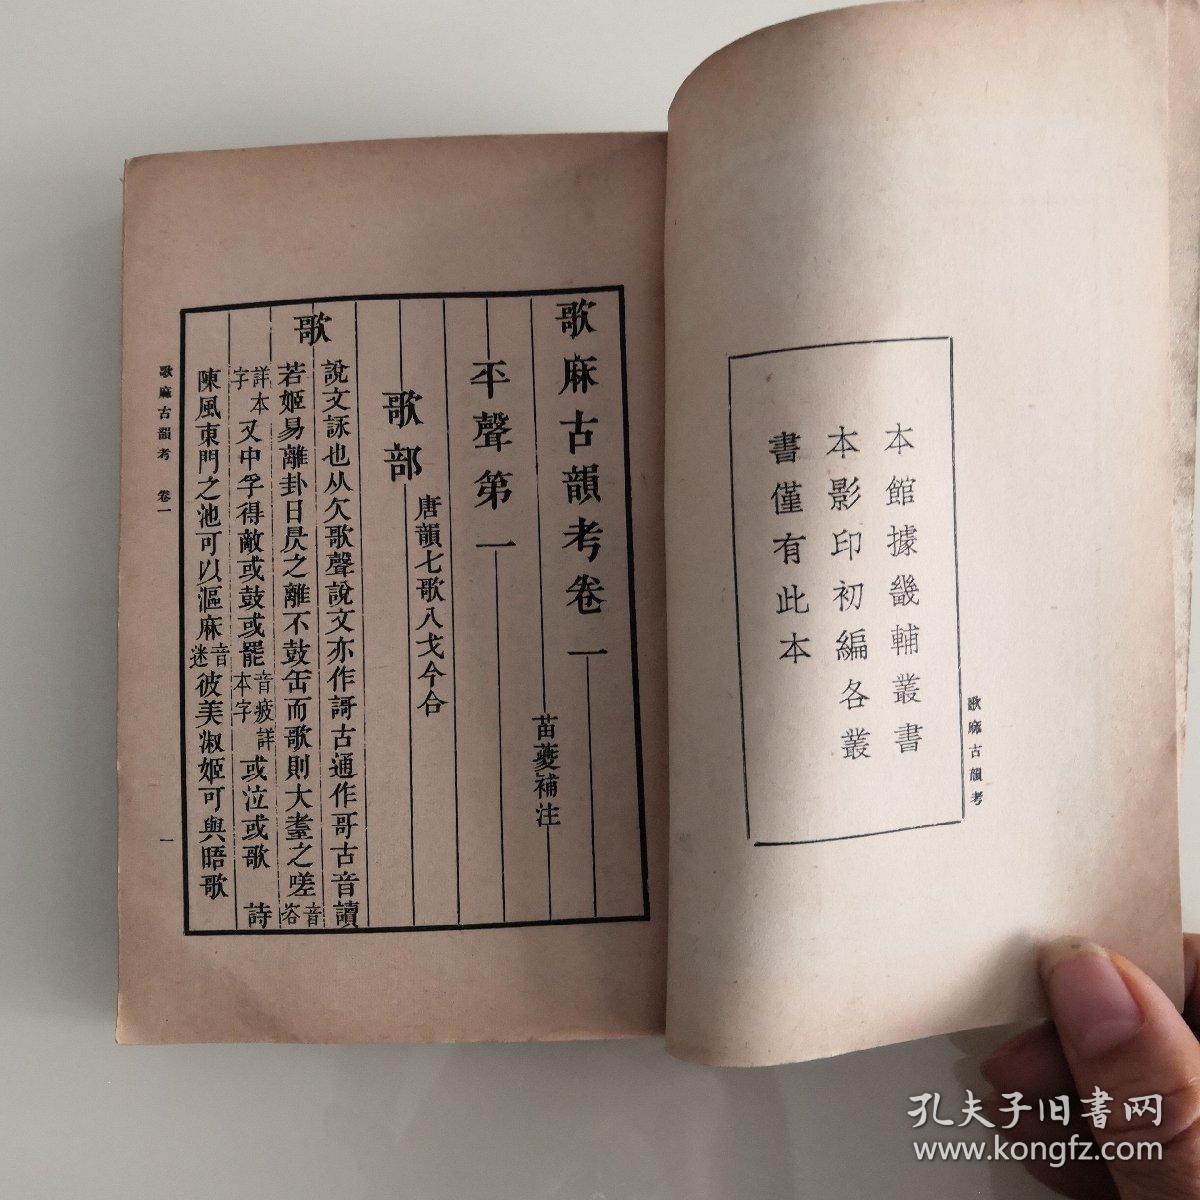 本館據畿輔叢書
本影印初編各叢
書僅有此本
歌麻古韻考
歌麻古韻考卷一
苗夔補注
平聲第一
歌部
唐韻七歌八戈今合
歌
說文詠也从欠歌聲說文亦作謌古通作哥古音讀
若姬易離卦日昃之離不鼓缶而歌則大耋之嗟音
詳本字又中孚得敵或鼓或罷音疲詳本字或泣或歌 詩
陳風東門之池可以漚麻音迷彼美淑姬可與晤歌
歌麻古韻考 卷一
一
孔夫子旧书网
www.kongfz.com